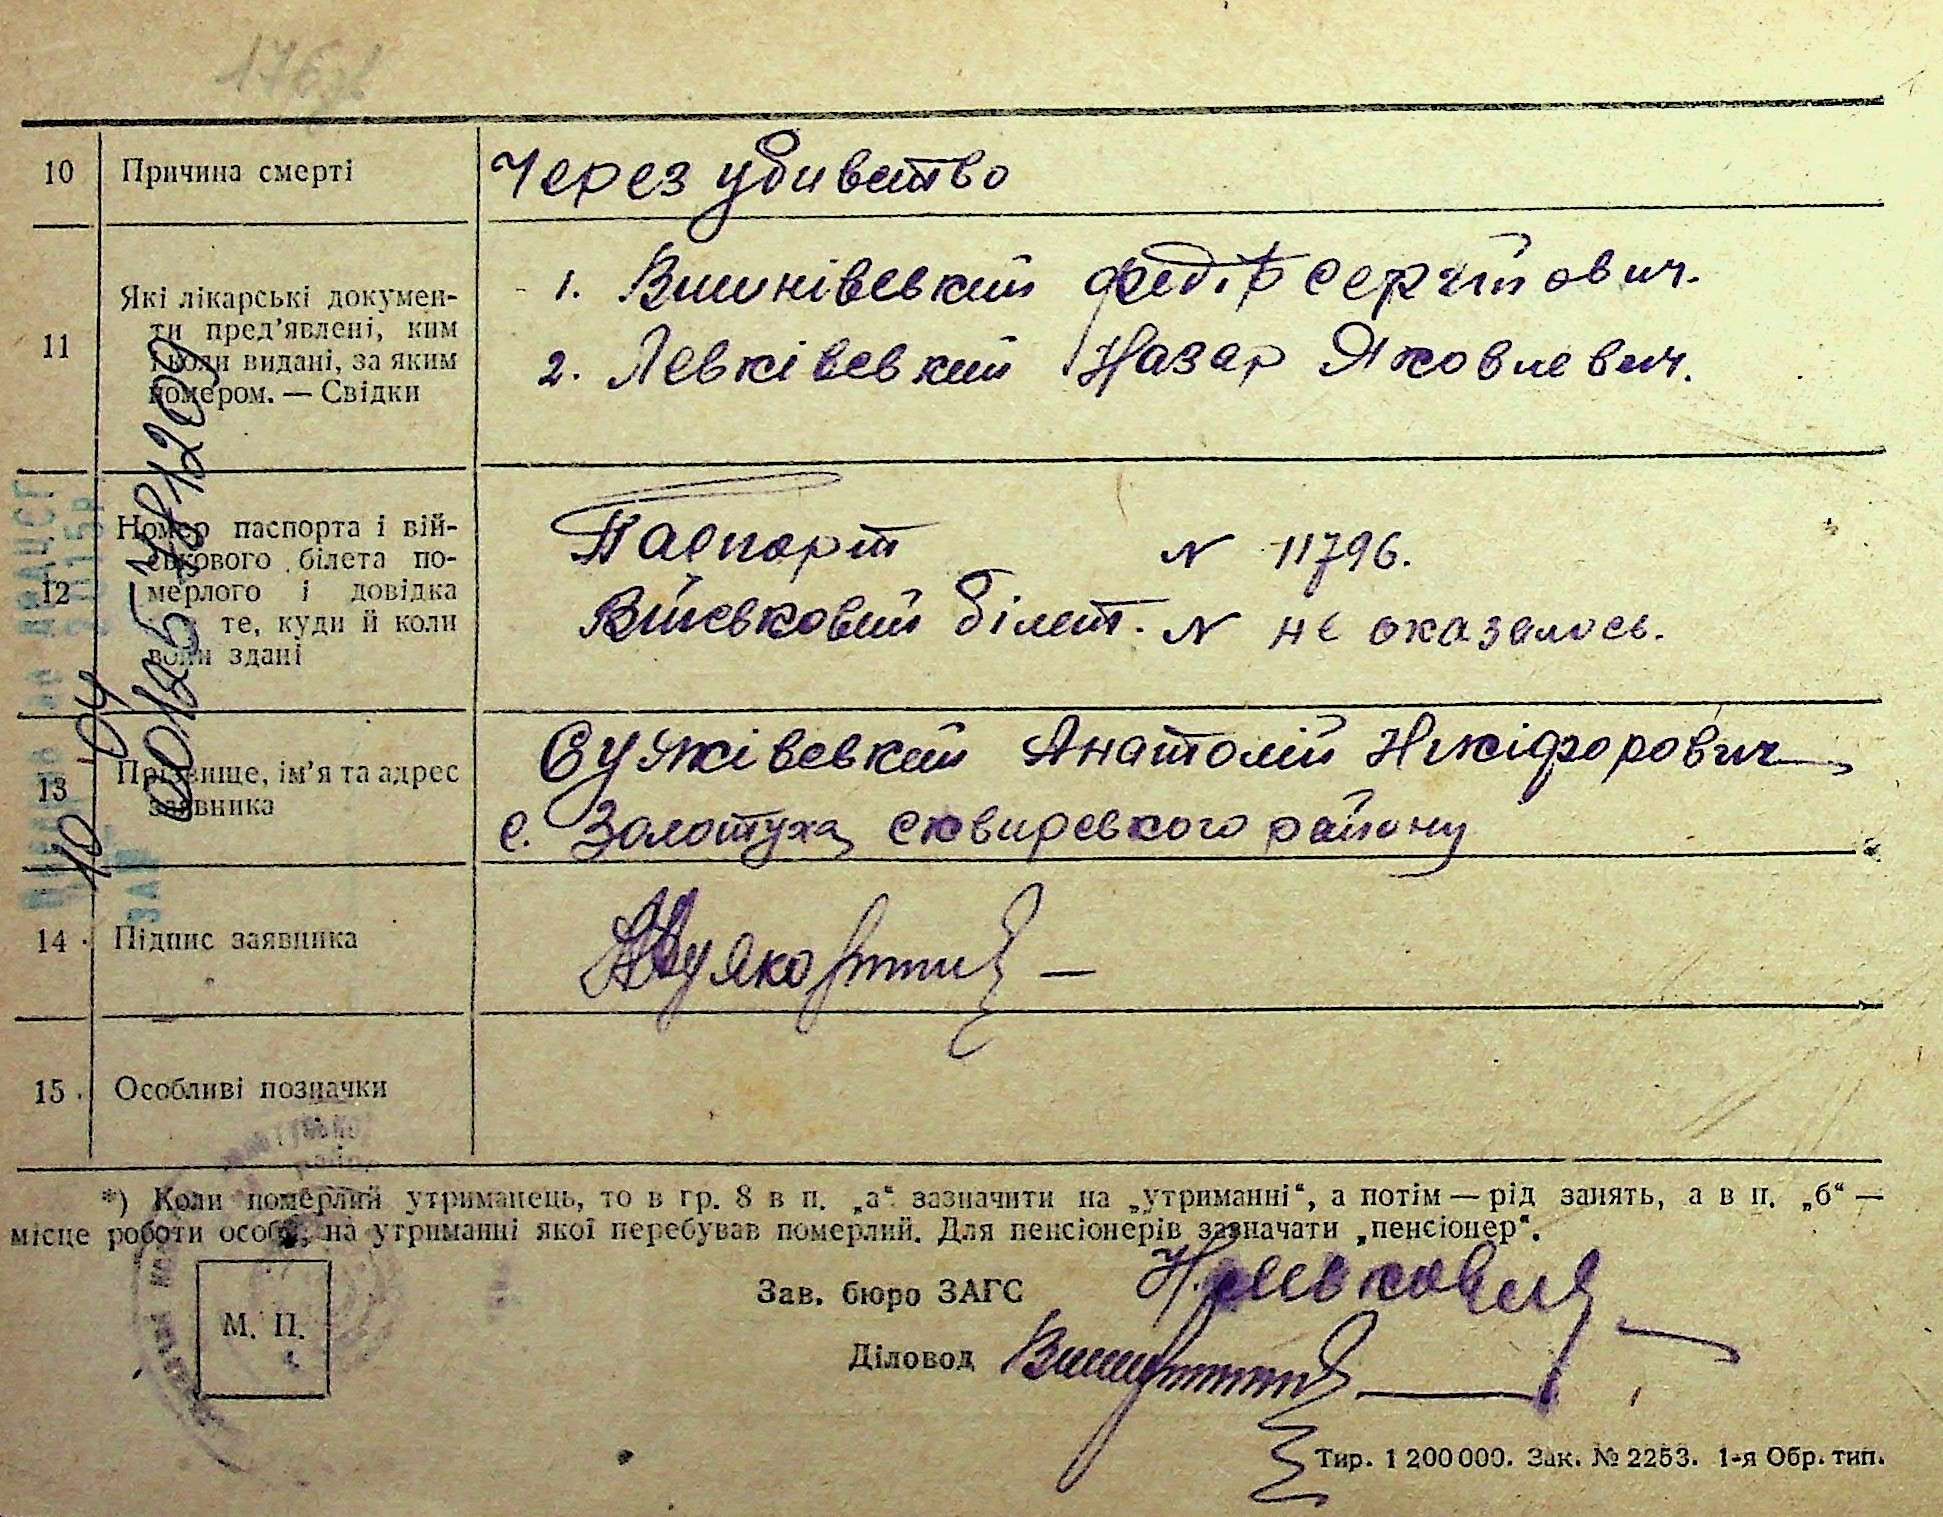 10 Причина смерті Через убивство
11 Які лікарські докумен-
ти пред'явлені, ким
і коли видані, за яким
номером. — Свідки
1. Вишнівський Федір Сергійович.
2. Левківський Назар Яковлевич.
12 Номер паспорта і вій-
ськового білета по-
мерлого і довідка
те, куди й коли
вони здані
Паспорт N 11796.
Військовий білет. N не оказалось.
13 Прізвище, ім'я та адрес
заявника
Анатолій Нікіфорович
с. Золотуха сквирського району
14 Підпис заявника
15 Особливі позначки
*) Коли померлий утриманець, то в гр. 8 в п. „а“ зазначити на „утриманні“, а потім — рід занять, а в п. „б“ —
місце роботи особи, на утриманні якої перебував померлий. Для пенсіонерів зазначати „пенсіонер“.
Зав. бюро ЗАГС
Діловод
М. П.
Тир. 1 200 000. Зак. № 2253. 1-я Обр. тип.